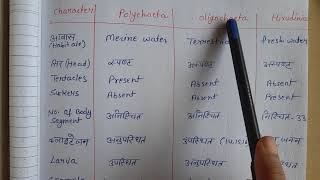 Character Polychaeta oligochaeta Hirudinia
आवास Merine water Terrestrial fresh water
(Habitate)
सिर (Head) स्पष्ट अस्पष्ट अस्पष्ट
Tentacles Present Absent Absent
Suckers Absent Absent Present
No. of Body अनिश्चित अनिश्चित निश्चित - 33
Segment
क्लाइटेलम अनुपस्थित उपस्थित
Larva उपस्थित अनुपस्थित